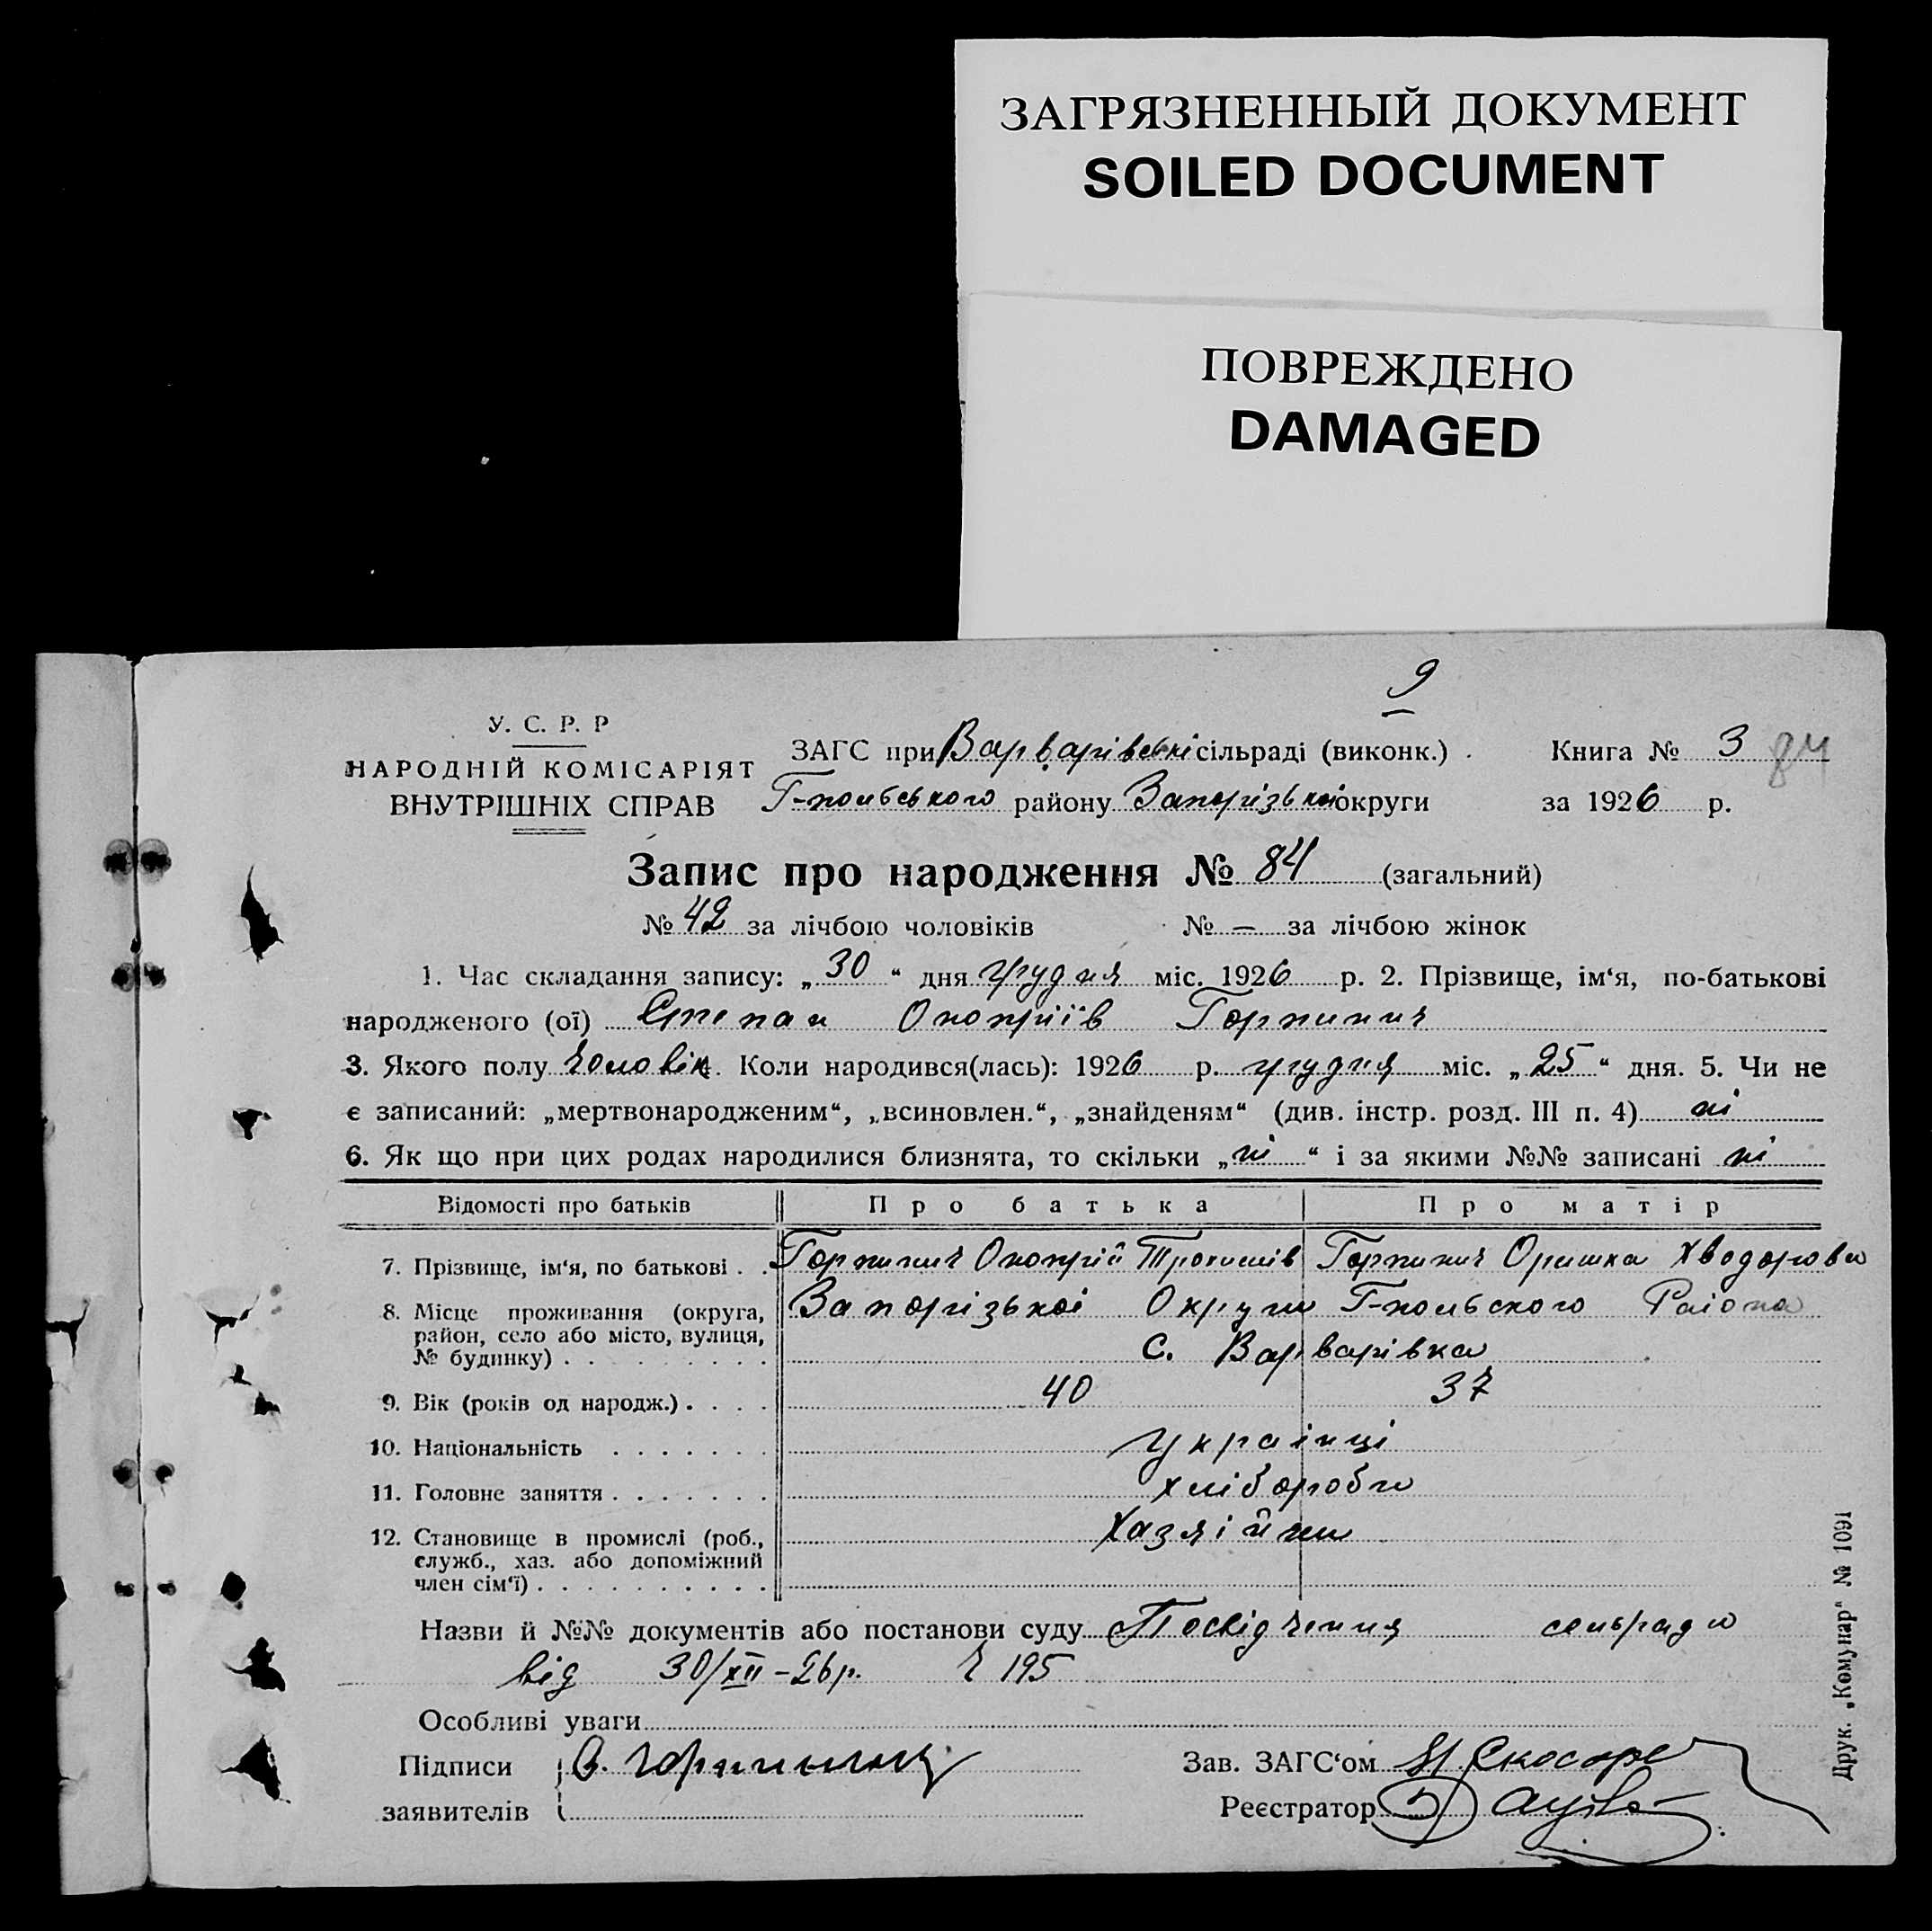 ЗАГРЯЗНЕННЫЙ ДОКУМЕНТ
SOILED DOCUMENT
ПОВРЕЖДЕНО
DAMAGED
9
У. С. Р. Р
НАРОДНІЙ КОМІСАРІЯТ
ВНУТРІШНІХ СПРАВ
ЗАГС при Варварівській сільраді (виконк.)
Г-польського району Запорізької округи
Книга № 3 84
за 1926 р.
Запис про народження № 84 (загальний)
№ 42 за лічбою чоловіків № — за лічбою жінок
1. Час складання запису: „30“ дня грудня міс. 1926 р. 2. Прізвище, ім‘я, по-батькові
народженого (ої) Степан Онопріїв Горпинич
3. Якого полу чоловік. Коли народився(лась): 1926 р. грудня міс. „25“ дня. 5. Чи не
є записаний: „мертвонародженим“, „всиновлен.“, „знайденям“ (див. інстр. розд. III п. 4) ні
6. Як що при цих родах народилися близнята, то скільки „ні“ і за якими №№ записані ні
Відомості про батьків Про батька Про матір
7. Прізвище, ім‘я, по батькові . . Горпинич Онопрій Трохимів Горпинич Оришка Хводорова
8. Місце проживання (округа, район, село або місто, вулиця, № будинку) . . Запорізької Округи Г-польського Раіона
с. Варварівка
9. Вік (років од народж.) . . . . 40 37
10. Національність . . . . . . . українці
11. Головне заняття . . . . . . . хлібороби
12. Становище в промислі (роб., служб., хаз. або допоміжний член сім‘ї) . . . . . . . . . . Хазяїйни
Назви й №№ документів або постанови суду Посвідчення сельради
від 30/XII-26р. ч 195
Особливі уваги
Підписи заявителів О. Горпинич
Зав. ЗАГС‘ом
Реєстратор
Друк. „Комунар“ № 1091